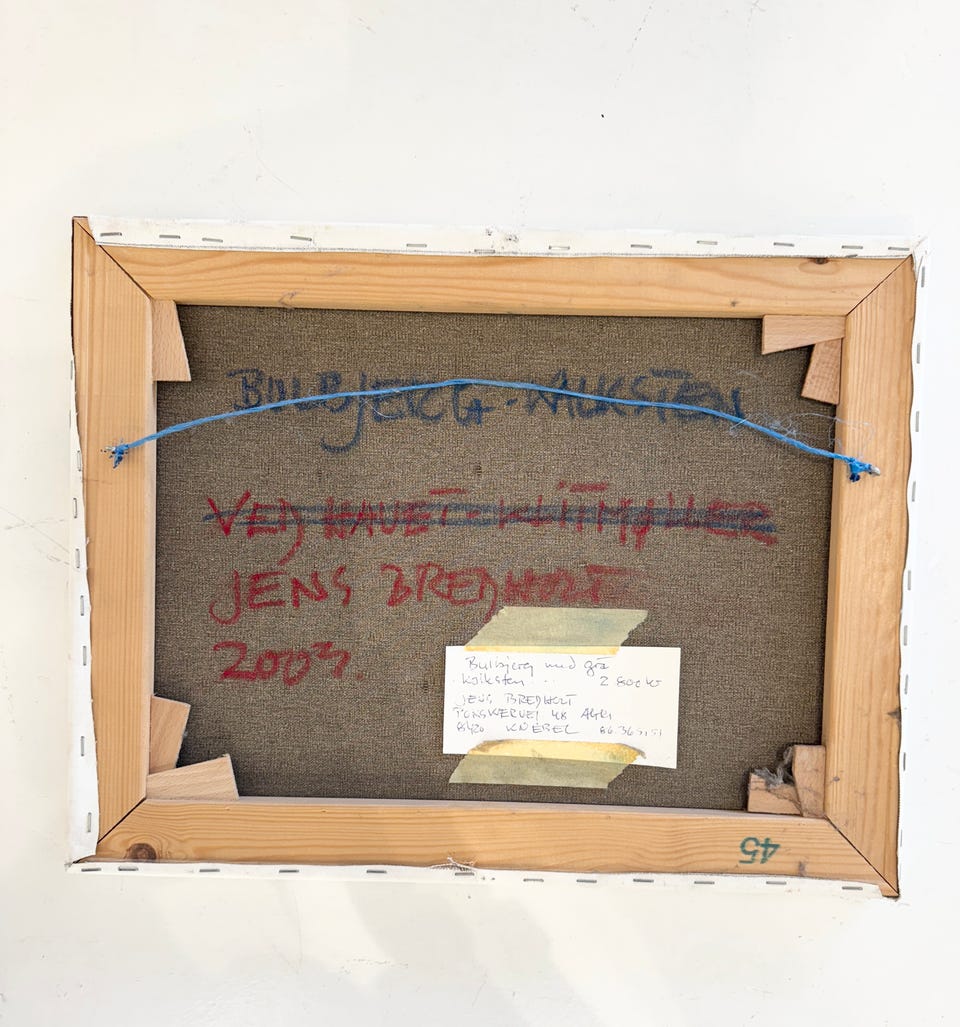 BULBJERG · KALKSTEN
VED HAVET · KLITMØLLER
JENS BREDHOLT
2003.
Bulbjerg med grå
kalksten 2 800 kr
JENS BREDHOLT
48 AGRI
8420 KNEBEL 86.36
45